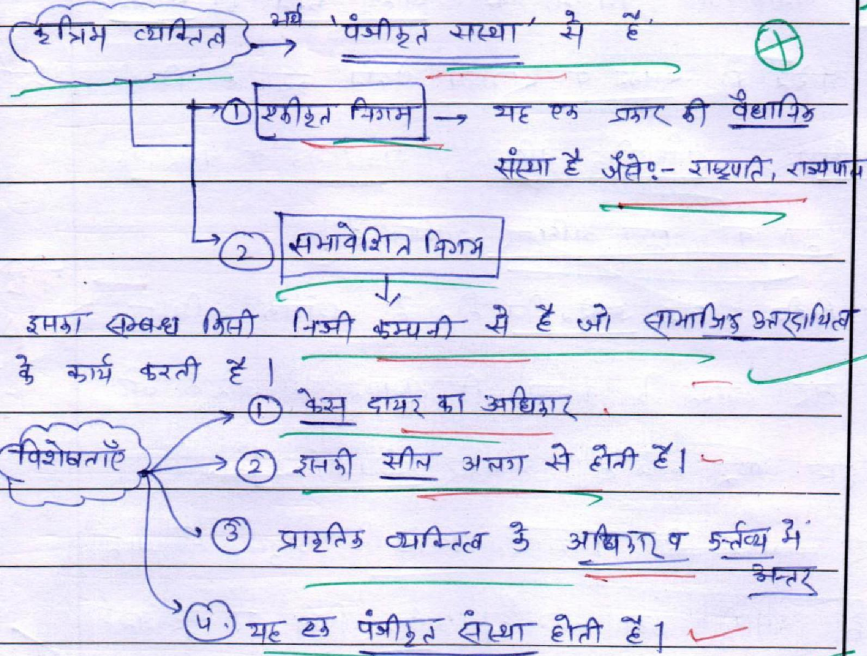 कृत्रिम व्यक्तित्व → अर्थ 'पंजीकृत संस्था' से है
① एकीकृत निगम → यह एक प्रकार की वैधानिक
संस्था है जैसे:- राष्ट्रपति, राज्यपाल
② समावेशित निगम
इसका सम्बन्ध किसी निजी कम्पनी से है जो सामाजिक उत्तरदायित्व
के कार्य करती है।
विशेषताएँ
① केस दायर का अधिकार
② इसकी सील अलग से होती है।
③ प्राकृतिक व्यक्तित्व के अधिकार व कर्त्तव्य में
अन्तर
④ यह एक पंजीकृत संस्था होती है।